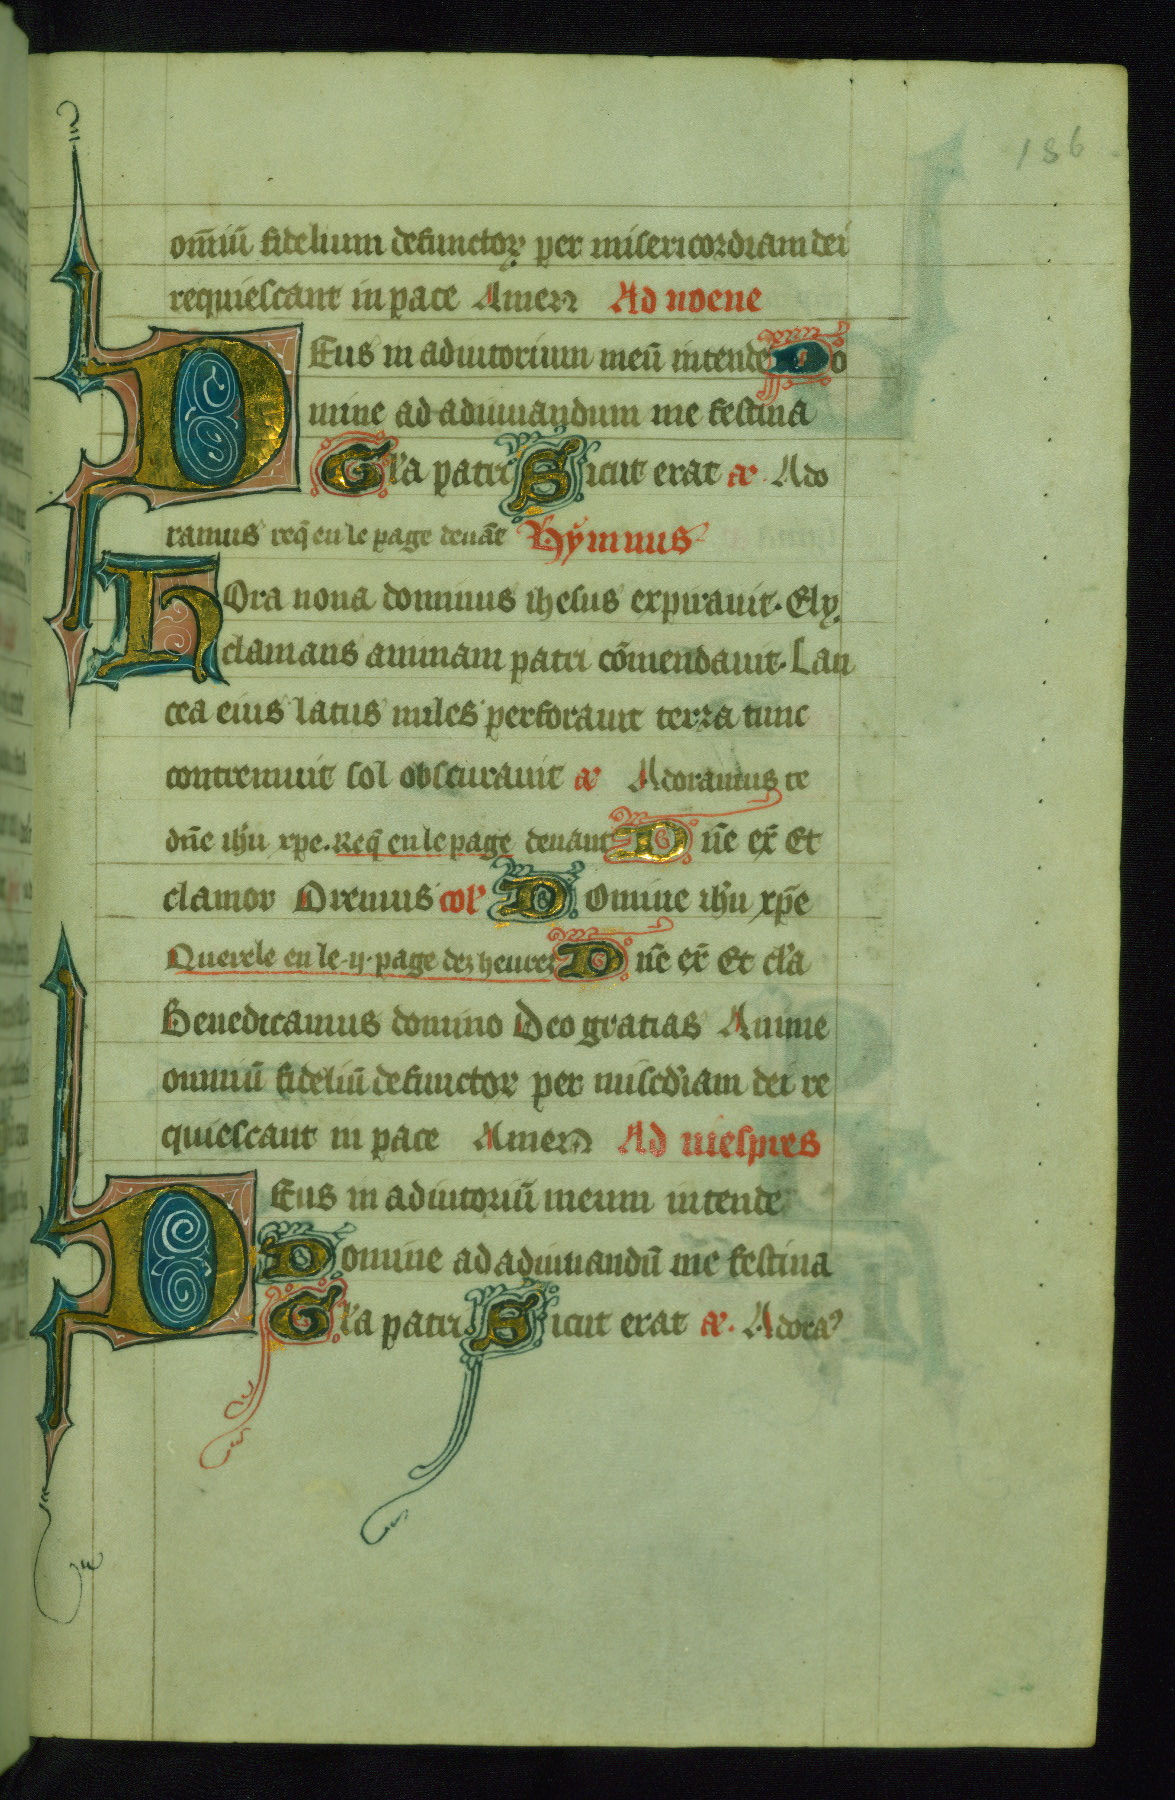 186
om̄iū fidelium defunctoꝝ per misericordiam dei
requiescant in pace Amen Ad noene
DEus in adiutorium meū intende Do
mine ad adiuuandum me festina
Gl'a patri Sicut erat ⁊c. Ado
ramus req̄ en le page deuāt Hymnus
HOra nona dominus ihesus expirauit. Ely
clamans animam patri cōmendauit. Lan
cea eius latus miles perforauit terra tunc
contremuit sol obscurauit ⁊c Adoramus te
dn̄e ih'u xp̄e. Req̄ en le page deuant Dn̄e ex̄ Et
clamor Oremus col' Domine ih'u xp̄e
Querele en le .ij. page dez heures Dn̄e ex̄ Et cl'a
Benedicamus domino Deo gratias Anime
omniū fideliū defunctor per misc̄d'iam dei re
quiescant in pace Amen Ad uiespres
DEus in adiutoriū meum intende
Domine ad adiuuandū me festina
Gl'a patri Sicut erat ⁊c. Adora'